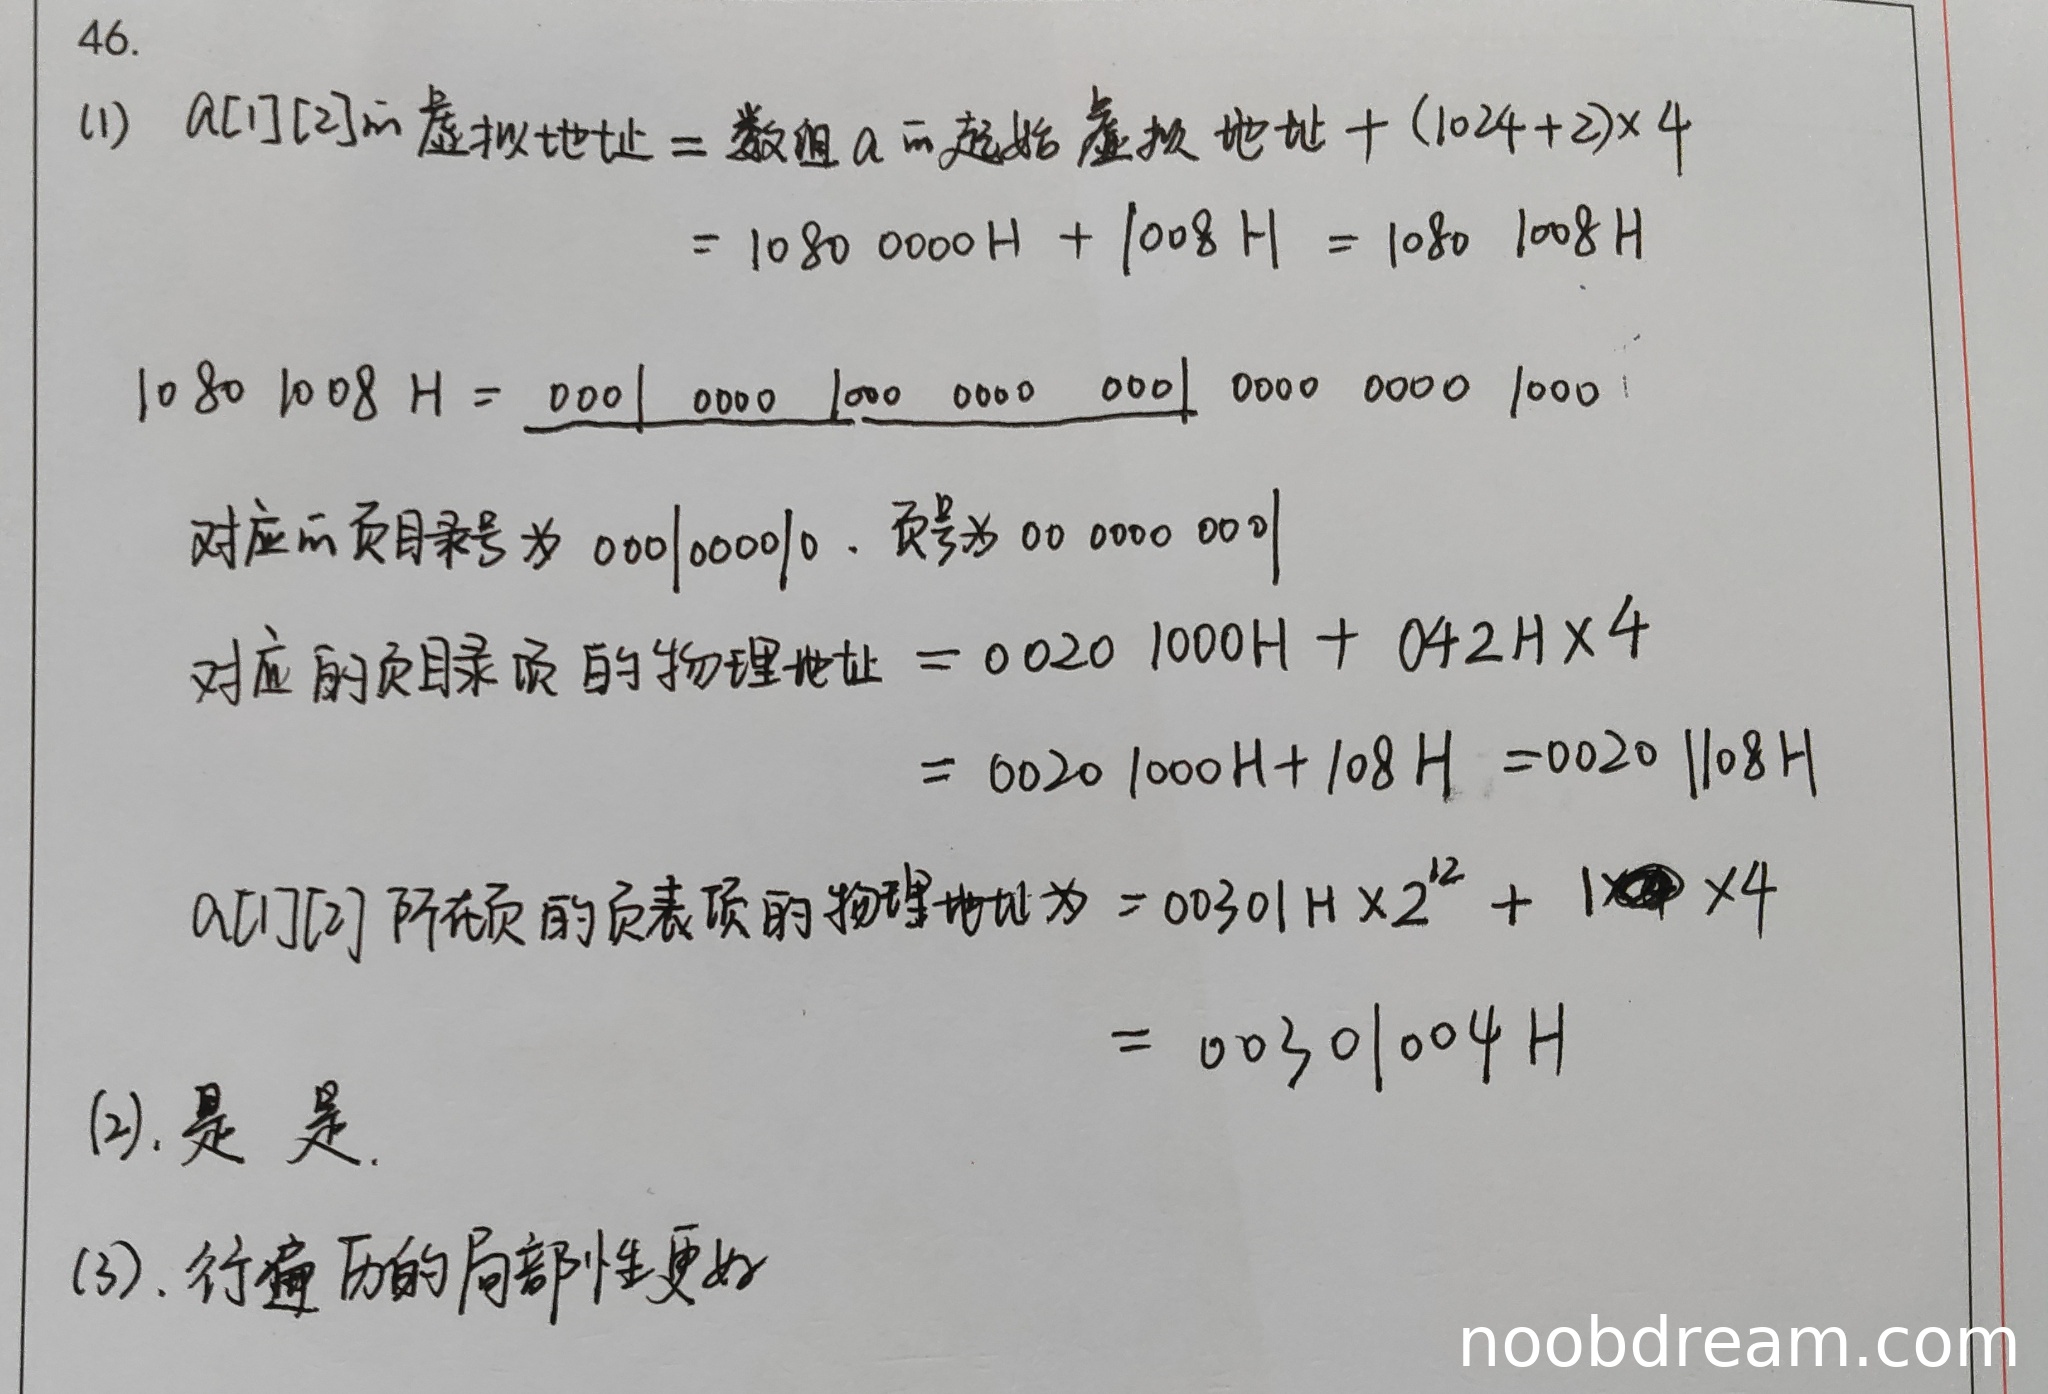 46.
(1) a[1][2]的虚拟地址 = 数组a的起始虚拟地址 + (1024+2)×4
= 1080 0000H + 1008H = 1080 1008H
1080 1008 H = 0001 0000 1000 0000 0001 0000 0000 1000
对应的页目录号为 0001000010. 页号为 00 0000 0001
对应的页目录项的物理地址 = 0020 1000H + 042H×4
= 0020 1000H + 108H = 0020 1108H
a[1][2]所在页的页表项的物理地址为 = 00301H×2¹² + 1 ×4
= 00301004H
(2). 是 是.
(3). 行遍历的局部性更好
noobdream.com